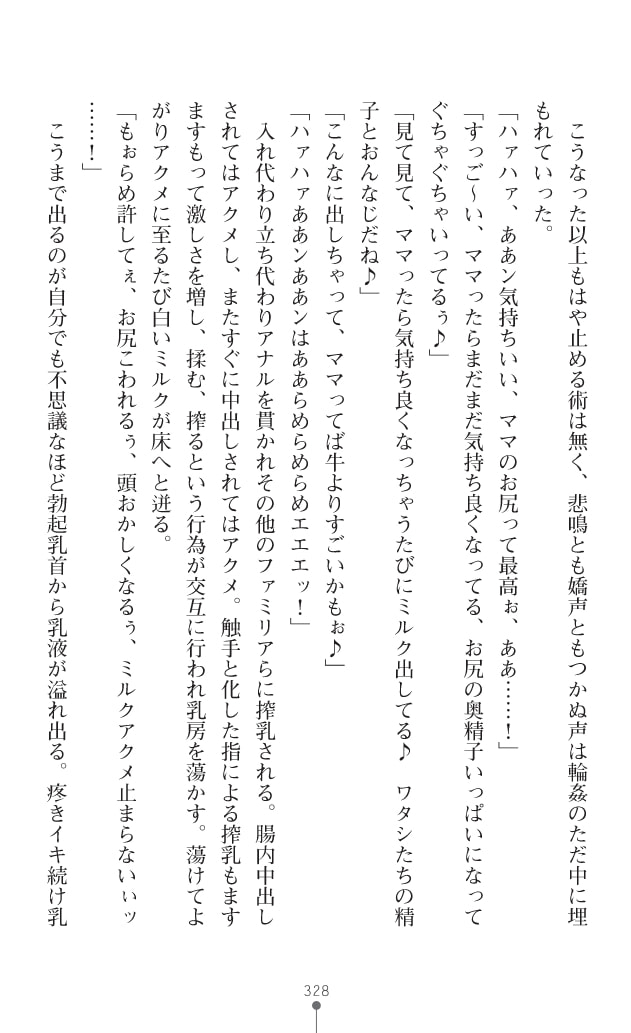 こうなった以上もはや止める術は無く、悲鳴とも嬌声ともつかぬ声は輪姦のただ中に埋
もれていった。
「ハァハァ、ああン気持ちいい、ママのお尻って最高ぉ、ああ……！」
「すっご～い、ママったらまだまだ気持ち良くなってる、お尻の奥精子いっぱいになって
ぐちゃぐちゃいってるぅ♪」
「見て見て、ママったら気持ち良くなっちゃうたびにミルク出してる♪　ワタシたちの精
子とおんなじだね♪」
「こんなに出しちゃって、ママってば牛よりすごいかもぉ♪」
「ハァハァああンああンはああらめらめらめエエエッ！」
入れ代わり立ち代わりアナルを貫かれその他のファミリアらに搾乳される。腸内中出し
されてはアクメし、またすぐに中出しされてはアクメ。触手と化した指による搾乳もます
ますもって激しさを増し、揉む、搾るという行為が交互に行われ乳房を蕩かす。蕩けてよ
がりアクメに至るたび白いミルクが床へと迸る。
「もぉらめ許してぇ、お尻こわれるぅ、頭おかしくなるぅ、ミルクアクメ止まらないぃッ
……！」
こうまで出るのが自分でも不思議なほど勃起乳首から乳液が溢れ出る。疼きイキ続け乳
328